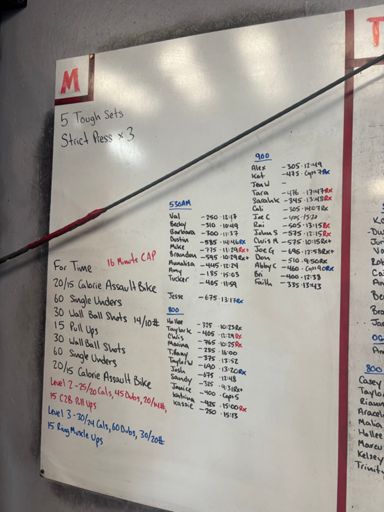 M
5 Tough Sets
Strict Press x 3
For Time 16 Minute CAP
20/15 Calorie Assault Bike
60 Single Unders
30 Wall Ball Shots 14/10#
15 Pull Ups
30 Wall Ball Shots
60 Single Unders
20/15 Calorie Assault Bike
Level 2 - 25/20 Cals, 45 Dubs, 20/14#,
15 C2B Pull Ups
Level 3 - 30/24 Cals, 60 Dubs, 30/20#
15 Ring Muscle Ups
530AM
Val - 250 · 12:17
Becky - 310 · 10:49
Barbara - 300 · 11:37
Dustin - 585 · 14:46 Rx
Mike - 775 · 11:29 Rx+
Brandon - 595 · 10:29 Rx+
Annalisa - 445 · 12:29
Amy - 185 · 15:03
Tucker - 405 · 11:59
Jesse - 675 · 13:17 Rx
800
Hollee - 325 · 10:23 Rx
Taylor K - 405 · 12:29 Rx
Chris - 765 · 10:25 Rx
Marina - 235 · 16:00
Tifany - 375 · 13:52
Taylor W - 690 · 13:20 Rx
Josh - 675 · 12:48
Sandy - 325
Janice - 400 · Cap+5
Katrina - 425 · 15:00 Rx
Kassie - 250 · 15:13
900
Alex - 305 · 12:49
Kat - 475 · Cap+7 Rx
Jen W -
Tara - 476 · 17:47 Rx
Sarah K - 345 · 13:48 Rx
Cali - 305 · 14:07 Rx
Joe C
Rai - 505 · 13:15 Rx
Johna S - 575 · 12:15 Rx
Chris M - 575 · 10:15 Rx+
Joe G - 695 · 12:58 Rx+
Dan - 510 · 9:50 Rx
Abby C - 460 · Cap+9 Rx
Bri - 400 · 12:38
Faith - 335 · 13:43
T
800
Casey
Taylo
Riann
Araceli
Malia
Hollee
Marcu
Kelsey
Trinity